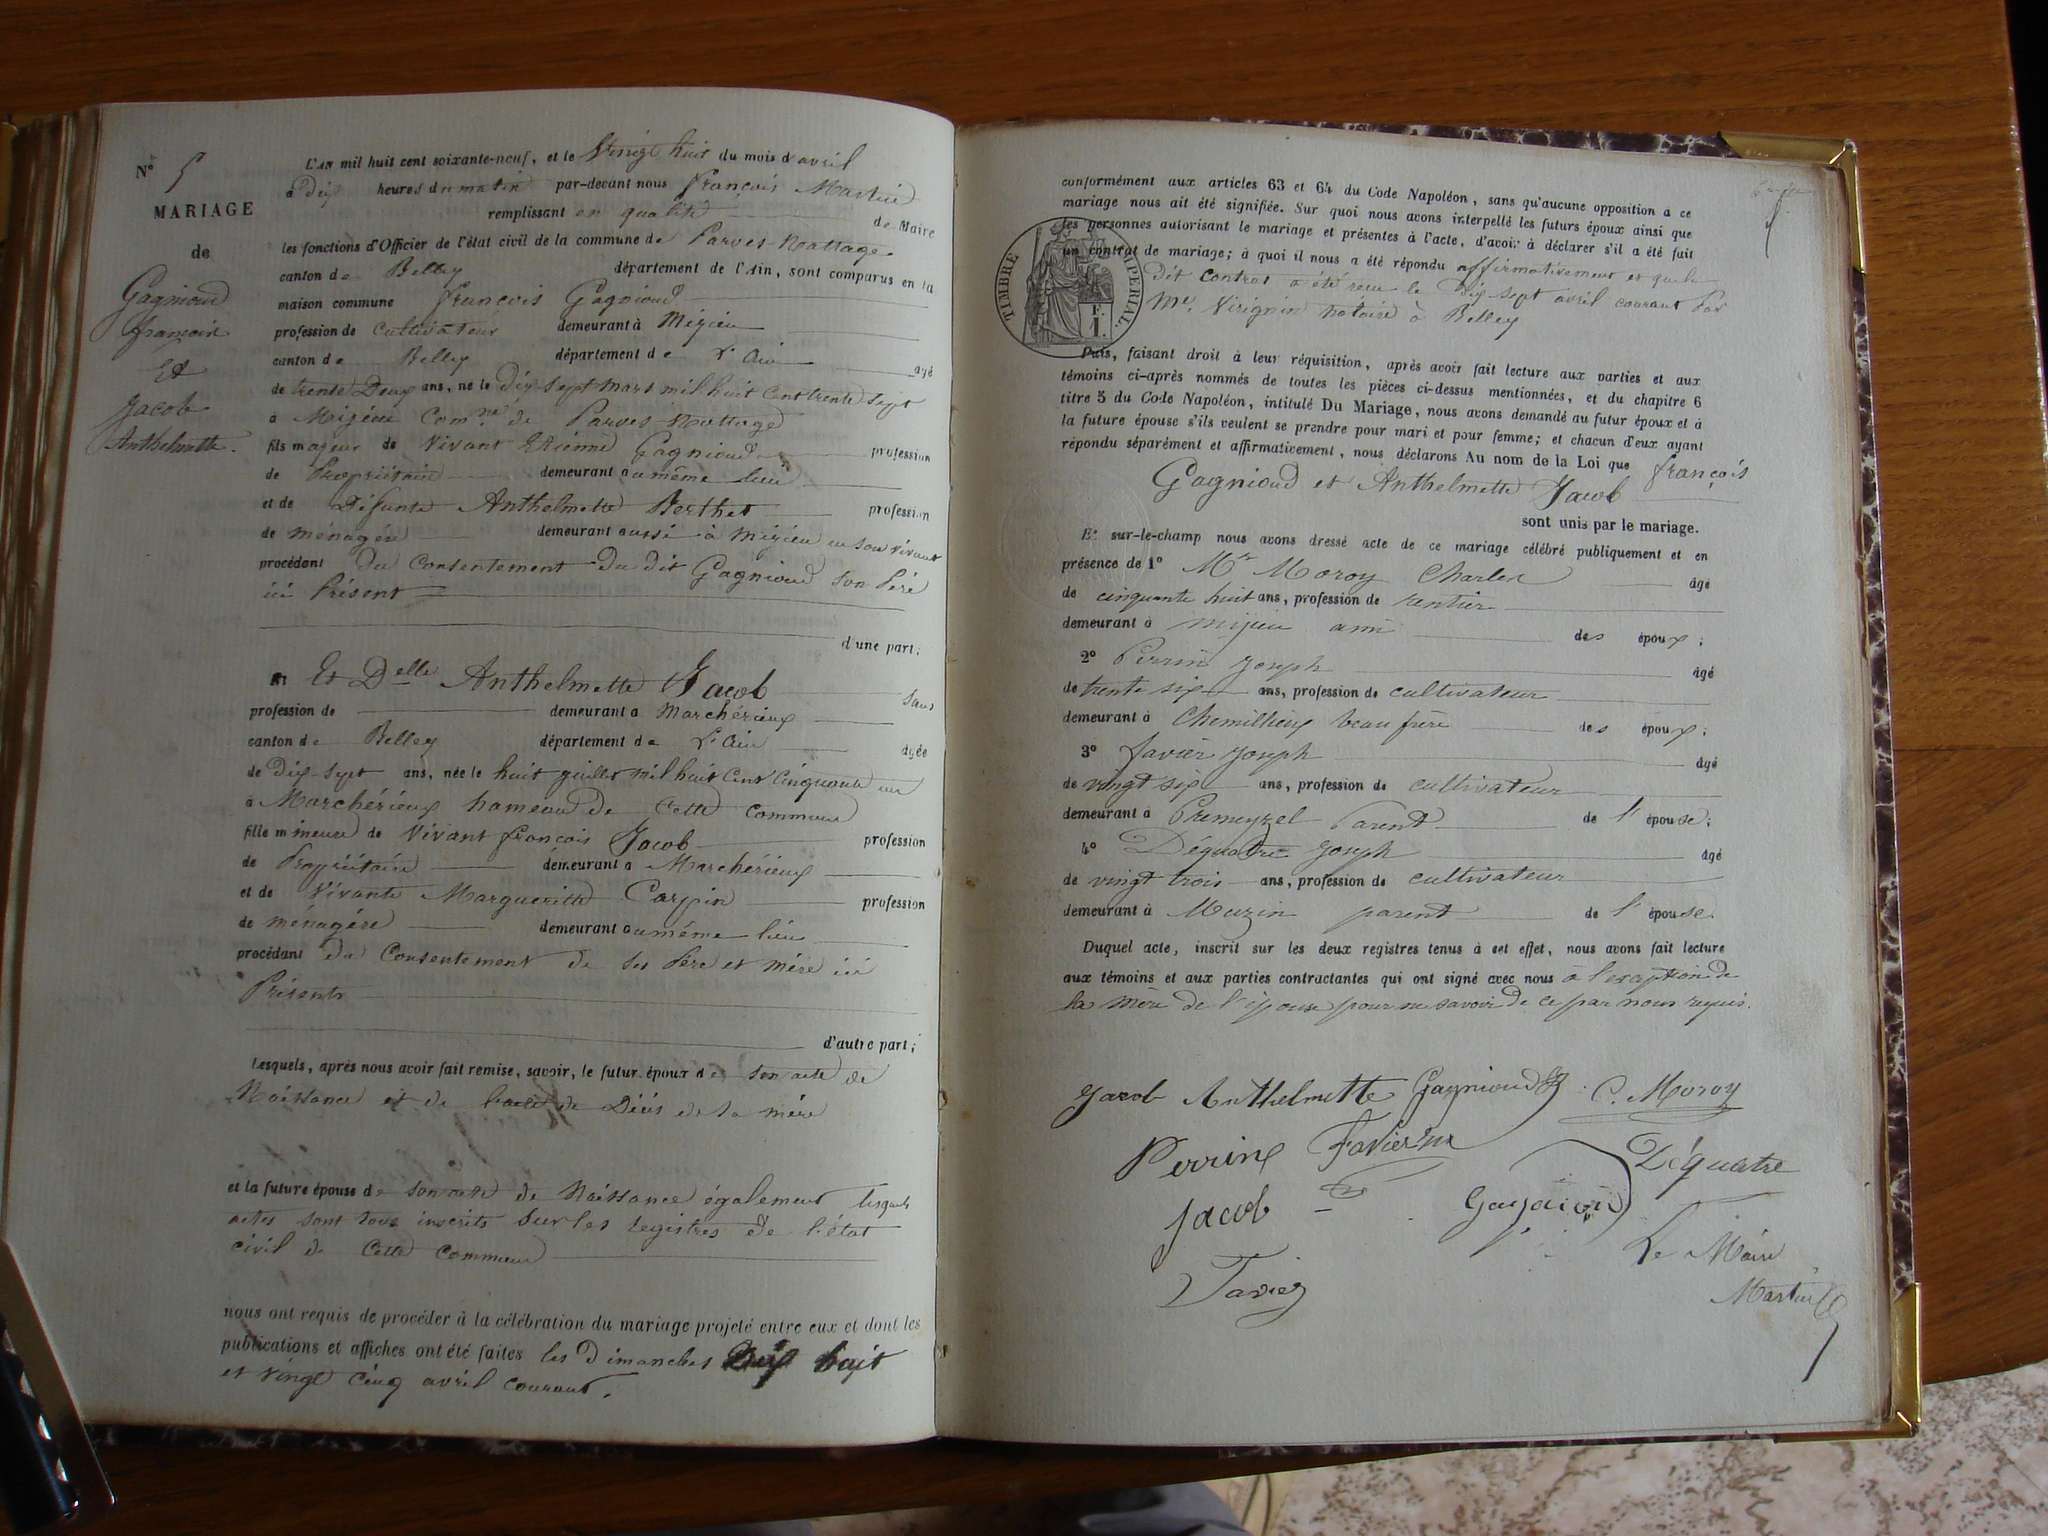 N° 5
MARIAGE
de
Gagnioud
françois
Et
Jacob
Anthelmette.
L'an mil huit cent soixante-neuf, et le Vingt huit du mois d'avril
à Dix heures du matin par-devant nous françois Martin
remplissant en qualité de Maire
les fonctions d'Officier de l'état civil de la commune de Parves-Nattage
canton de Belley département de l'Ain, sont comparus en la
maison commune françois Gagnioud
profession de cultivateur demeurant à Mézieu
canton de Belley département de L'Ain âgé
de trente Deux ans, né le Dix Sept mars mil huit Cent trente Sept
à Com.ne de Parves-Nattage
fils majeur de Vivant Etienne Gagnioud profession
de Propriétaire demeurant au même lieu
et de Défunte Anthelmette Berthet profession
de ménagère demeurant aussi à en son vivant
procédant Du Consentement Du dit Gagnioud son Père
ici Présent
d'une part;
Et Delle Anthelmette Jacob Sans
profession de demeurant à Marchérieux
canton de Belley département de L'Ain âgée
de Dix-Sept ans, née le huit juillet mil huit Cent Cinquante un
à Marchérieux hameau de Cette Commune
fille mineure de Vivant françois Jacob profession
de Propriétaire demeurant à Marchérieux
et de Vivante Margueritte Carpin profession
de ménagère demeurant au même lieu
procédant du Consentement de ses Père et mère ici
Présents
d'autre part;
Lesquels, après nous avoir fait remise, savoir, le futur époux de son acte de
Naissance et de l'acte de Décès de sa mère
et la future épouse de son acte de Naissance également lesquels
actes sont tous inscrits Sur les registres de l'état
civil de Cette commune
nous ont requis de procéder à la célébration du mariage projeté entre eux et dont les
publications et affiches ont été faites les Dimanches Dix huit
et vingt cinq avril courant.
conformément aux articles 63 et 64 du Code Napoléon, sans qu'aucune opposition à ce
mariage nous ait été signifiée. Sur quoi nous avons interpellé les futurs époux ainsi que
les personnes autorisant le mariage et présentes à l'acte, d'avoir à déclarer s'il a été fait
un contrat de mariage; à quoi il nous a été répondu affirmativement et que le
Dit contrat a été reçu le Dix sept avril courant Par
Me. Virignin notaire à Belley
TIMBRE IMPÉRIAL.
1 F.
Puis, faisant droit à leur réquisition, après avoir fait lecture aux parties et aux
témoins ci-après nommés de toutes les pièces ci-dessus mentionnées, et du chapitre 6
titre 5 du Code Napoléon, intitulé Du Mariage, nous avons demandé au futur époux et à
la future épouse s'ils veulent se prendre pour mari et pour femme; et chacun d'eux ayant
répondu séparément et affirmativement, nous déclarons Au nom de la Loi que françois
Gagnioud et Anthelmette Jacob
sont unis par le mariage.
Et sur-le-champ nous avons dressé acte de ce mariage célébré publiquement et en
présence de 1° Mr Moroy Charles âgé
de cinquante huit ans, profession de rentier
demeurant à ami des époux;
2° Perrin Joseph âgé
de trente six ans, profession de cultivateur
demeurant à Chemillieux beau frère des époux;
3° favier Joseph âgé
de vingt six ans, profession de cultivateur
demeurant à Premeyzel Parent de l'épouse;
4° Déquatre Joseph âgé
de vingt trois ans, profession de cultivateur
demeurant à Muzin parent de l'épouse
Duquel acte, inscrit sur les deux registres tenus à cet effet, nous avons fait lecture
aux témoins et aux parties contractantes qui ont signé avec nous à l'exception de
la mère de l'épouse pour ne savoir de ce par nous requis.
Jacob Anthelmette Gagnioud C. Moroy
Perrin Favier Déquatre
Jacob
Le Maire
Favier Martin